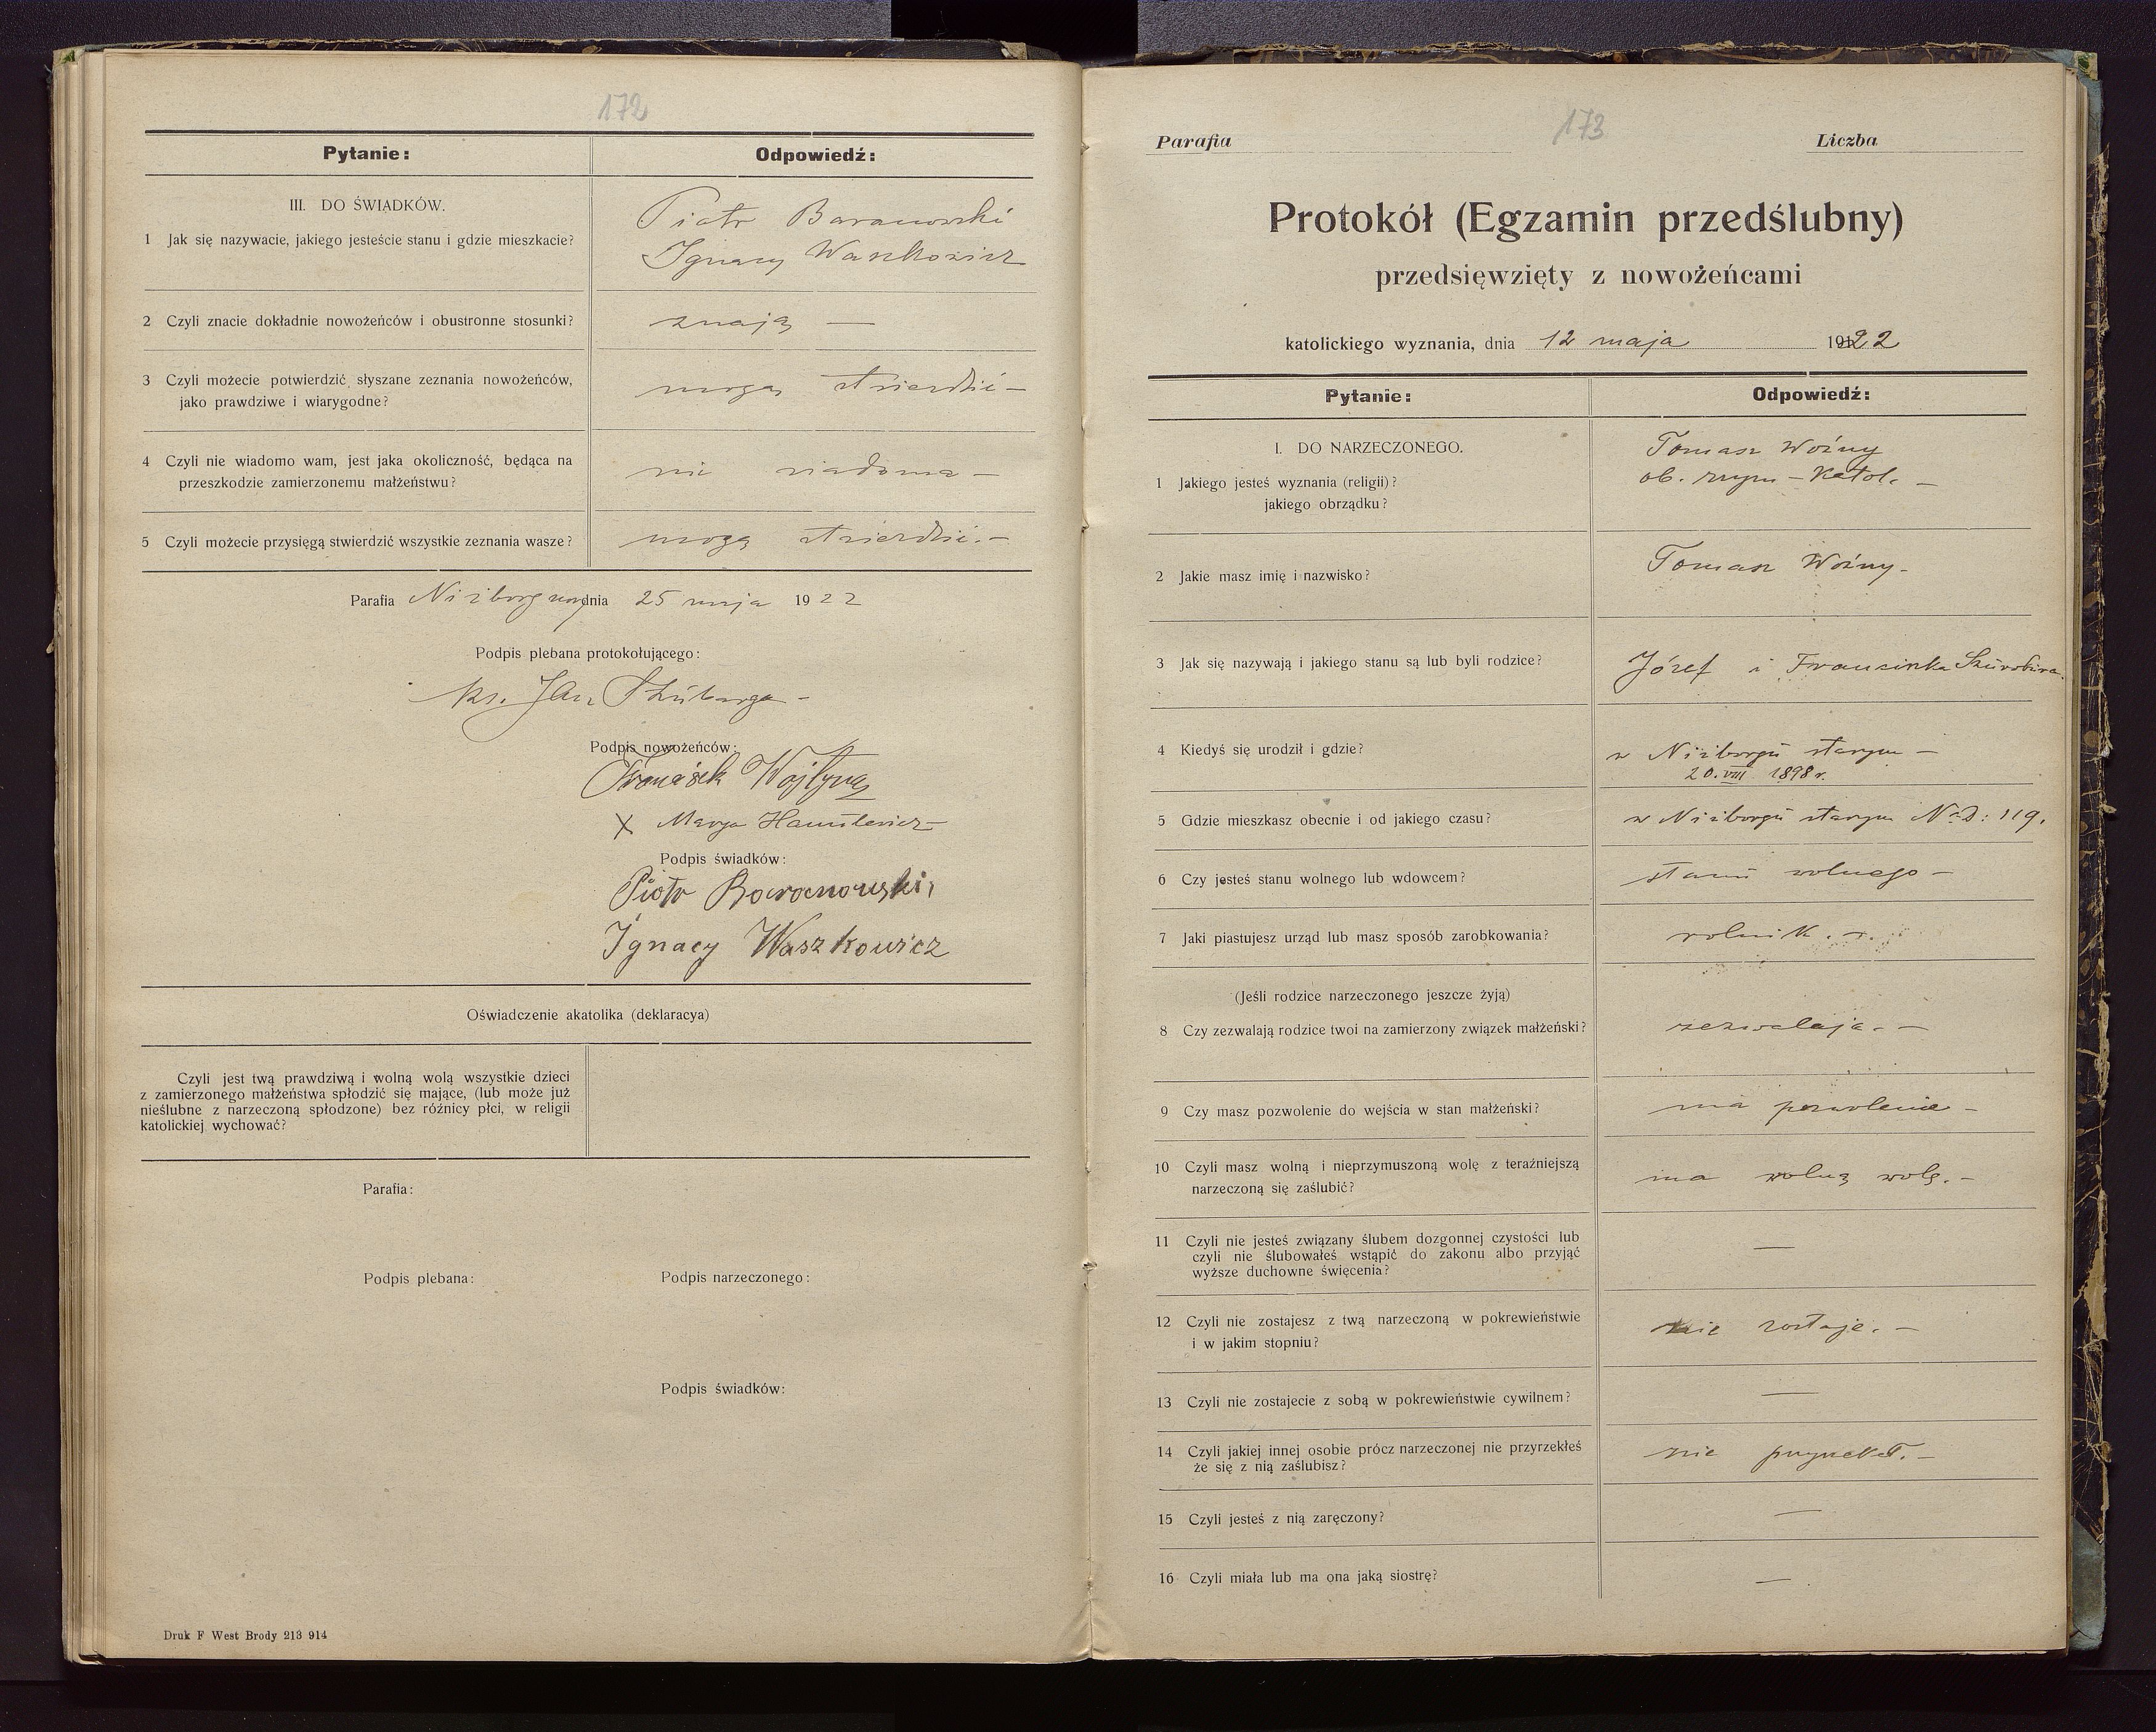 172
Pytanie:
Odpowiedź:
III. DO ŚWIADKÓW.
1 Jak się nazywacie, jakiego jesteście stanu i gdzie mieszkacie?
Piotr Baranowski
Ignacy Waszkowicz
2 Czyli znacie dokładnie nowożeńców i obustronne stosunki?
znają —
3 Czyli możecie potwierdzić słyszane zeznania nowożeńców,
jako prawdziwe i wiarygodne?
mogą stwierdzić —
4 Czyli nie wiadomo wam, jest jaka okoliczność, będąca na
przeszkodzie zamierzonemu małżeństwu?
nie wiadomo —
5 Czyli możecie przysięgą stwierdzić wszystkie zeznania wasze?
mogą stwierdzić. —
Parafia Niżborg nowy dnia 25 maja 1922
Podpis plebana protokołującego:
Ks. Jan
Podpis nowożeńców:
Franciszek Wojtyna
X Marya Hamulewicz
Podpis świadków:
Piotr Baranowski,
Ignacy Waszkowicz
Oświadczenie akatolika (deklaracya)
Czyli jest twą prawdziwą i wolną wolą wszystkie dzieci
z zamierzonego małżeństwa spłodzić się mające, (lub może już
nieślubne z narzeczoną spłodzone) bez różnicy płci, w religii
katolickiej wychować?
Parafia:
Podpis plebana:
Podpis narzeczonego:
Podpis świadków:
Druk F West Brody 213 914
173
Parafia
Liczba
Protokół (Egzamin przedślubny)
przedsięwzięty z nowożeńcami
katolickiego wyznania, dnia 12 maja 1922
Pytanie:
Odpowiedź:
I. DO NARZECZONEGO.
1 Jakiego jesteś wyznania (religii)?
jakiego obrządku?
Tomasz Woźny
ob. rzym - Katol. —
2 Jakie masz imię i nazwisko?
Tomasz Woźny -
3 Jak się nazywają i jakiego stanu są lub byli rodzice?
Józef i Franciszka
4 Kiedyś się urodził i gdzie?
w Niżborgu starym —
20. VIII 1898 r.
5 Gdzie mieszkasz obecnie i od jakiego czasu?
w Niżborgu starym N. D: 119.
6 Czy jesteś stanu wolnego lub wdowcem?
stanu wolnego —
7 Jaki piastujesz urząd lub masz sposób zarobkowania?
rolnik. —
(Jeśli rodzice narzeczonego jeszcze żyją)
8 Czy zezwalają rodzice twoi na zamierzony związek małżeński?
zezwalają. —
9 Czy masz pozwolenie do wejścia w stan małżeński?
ma pozwolenie —
10 Czyli masz wolną i nieprzymuszoną wolę z teraźniejszą
narzeczoną się zaślubić?
ma wolną wolę. —
11 Czyli nie jesteś związany ślubem dozgonnej czystości lub
czyli nie ślubowałeś wstąpić do zakonu albo przyjąć
wyższe duchowne święcenia?
—
12 Czyli nie zostajesz z twą narzeczoną w pokrewieństwie
i w jakim stopniu?
nie zostaje. —
13 Czyli nie zostajecie z sobą w pokrewieństwie cywilnem?
—
14 Czyli jakiej innej osobie prócz narzeczonej nie przyrzekłeś
że się z nią zaślubisz?
nie przyrzekł. —
15 Czyli jesteś z nią zaręczony?
—
16 Czyli miała lub ma ona jaką siostrę?
—